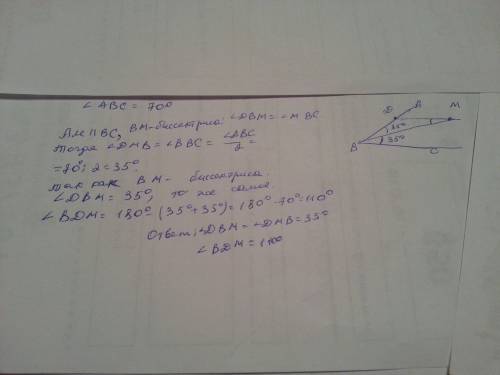 ∠ABC = 70°
║BC, BM-биссектриса: ∠DBM = ∠MBC
Тогда ∠DMB = ∠BBC = ∠ABC/2 =
= 70° : 2 = 35°.
Так как BM - биссектриса.
∠DBM = 35°, то же самое.
∠BDM = 180° (35°+35°) = 180° - 70° = 110°
Ответ: ∠DBM = ∠DMB = 35°
∠BDM = 110°
D A M
35°
35°
B C